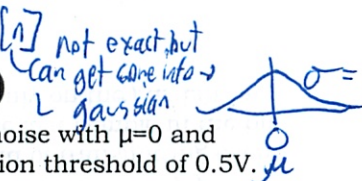 [n] not exact, but
can get some into →
gaussian
σ =
0
μ
noise with μ=0 and
ion threshold of 0.5V.